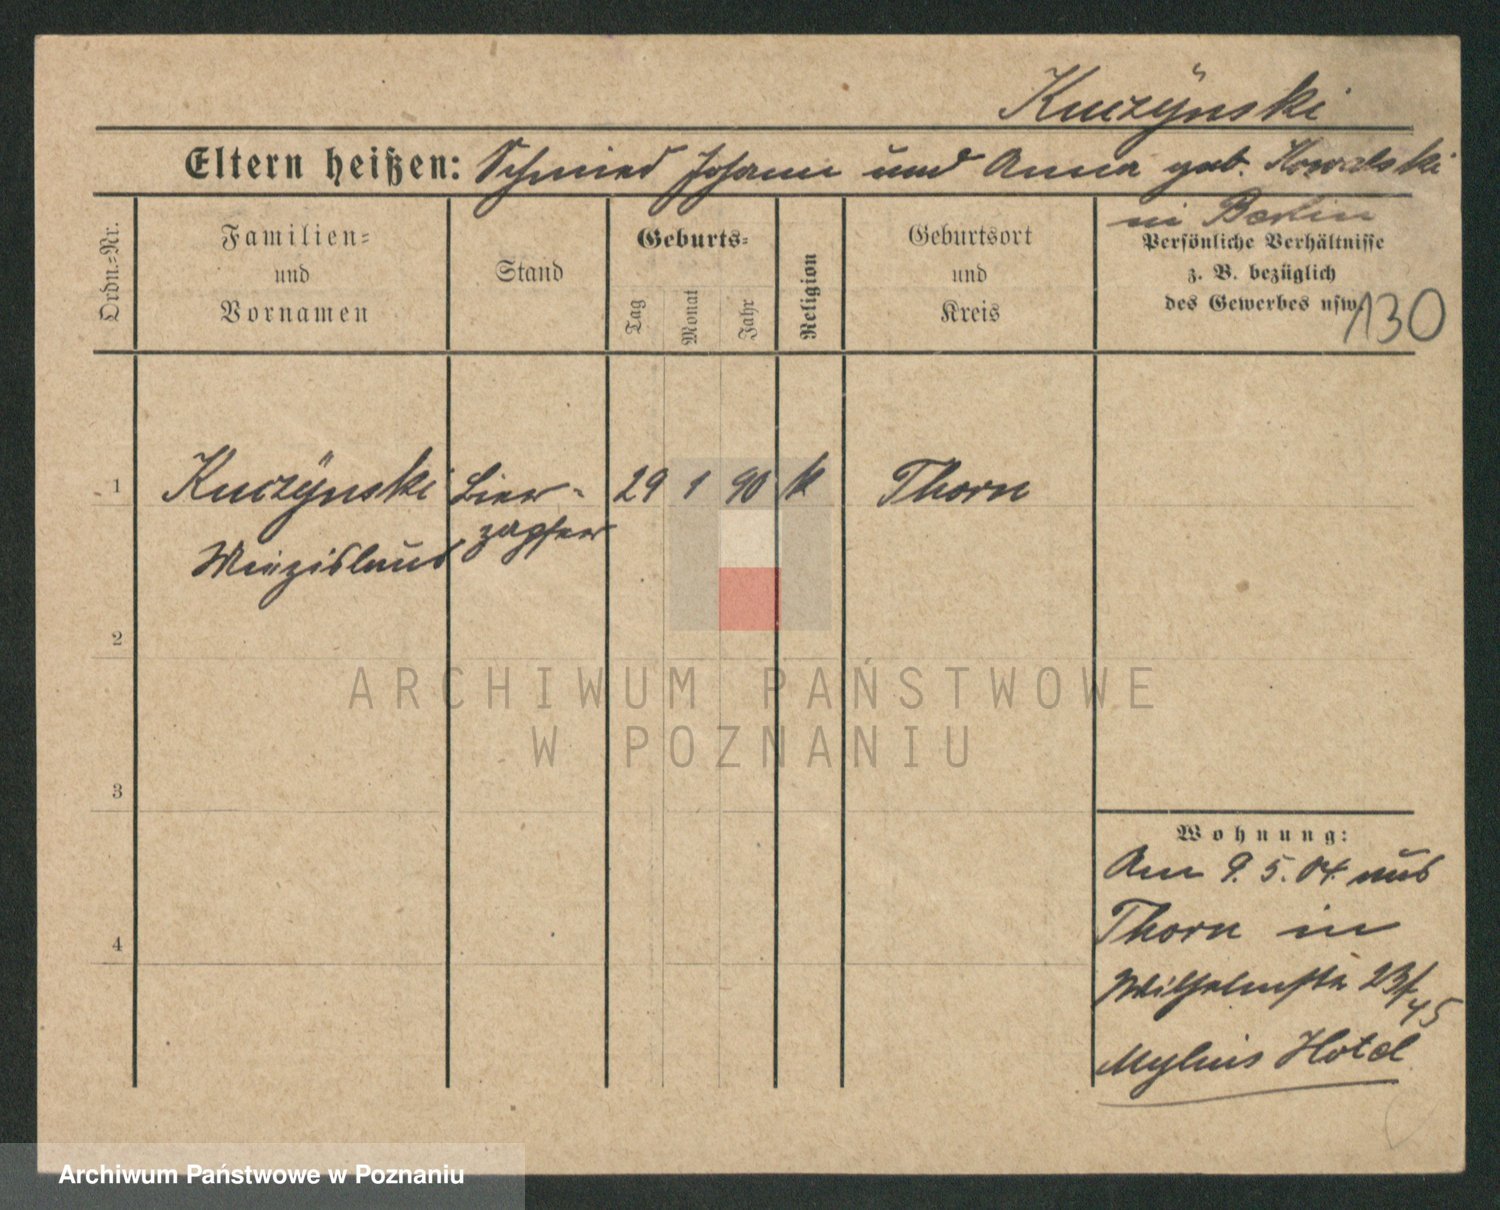 Kuczÿnski
Eltern heißen: Schmied Johann und Anna geb. Kowalski
in Berlin
Ordn.=Nr.
Familien=
und
Vornamen
Stand
Geburts=
Tag
Monat
Jahr
Religion
Geburtsort
und
Kreis
Persönliche Verhältnisse
z. B. bezüglich
des Gewerbes usw.
130
1 Kuczÿnski Bier- 29 1 90 k Thorn
zapfer
2
3
4
Wohnung:
Am 9. 5. 04. aus
Thorn in
Wilhelmstr 23/
45
Mylius Hotel
ARCHIWUM PAŃSTWOWE
W POZNANIU
Archiwum Państwowe w Poznaniu